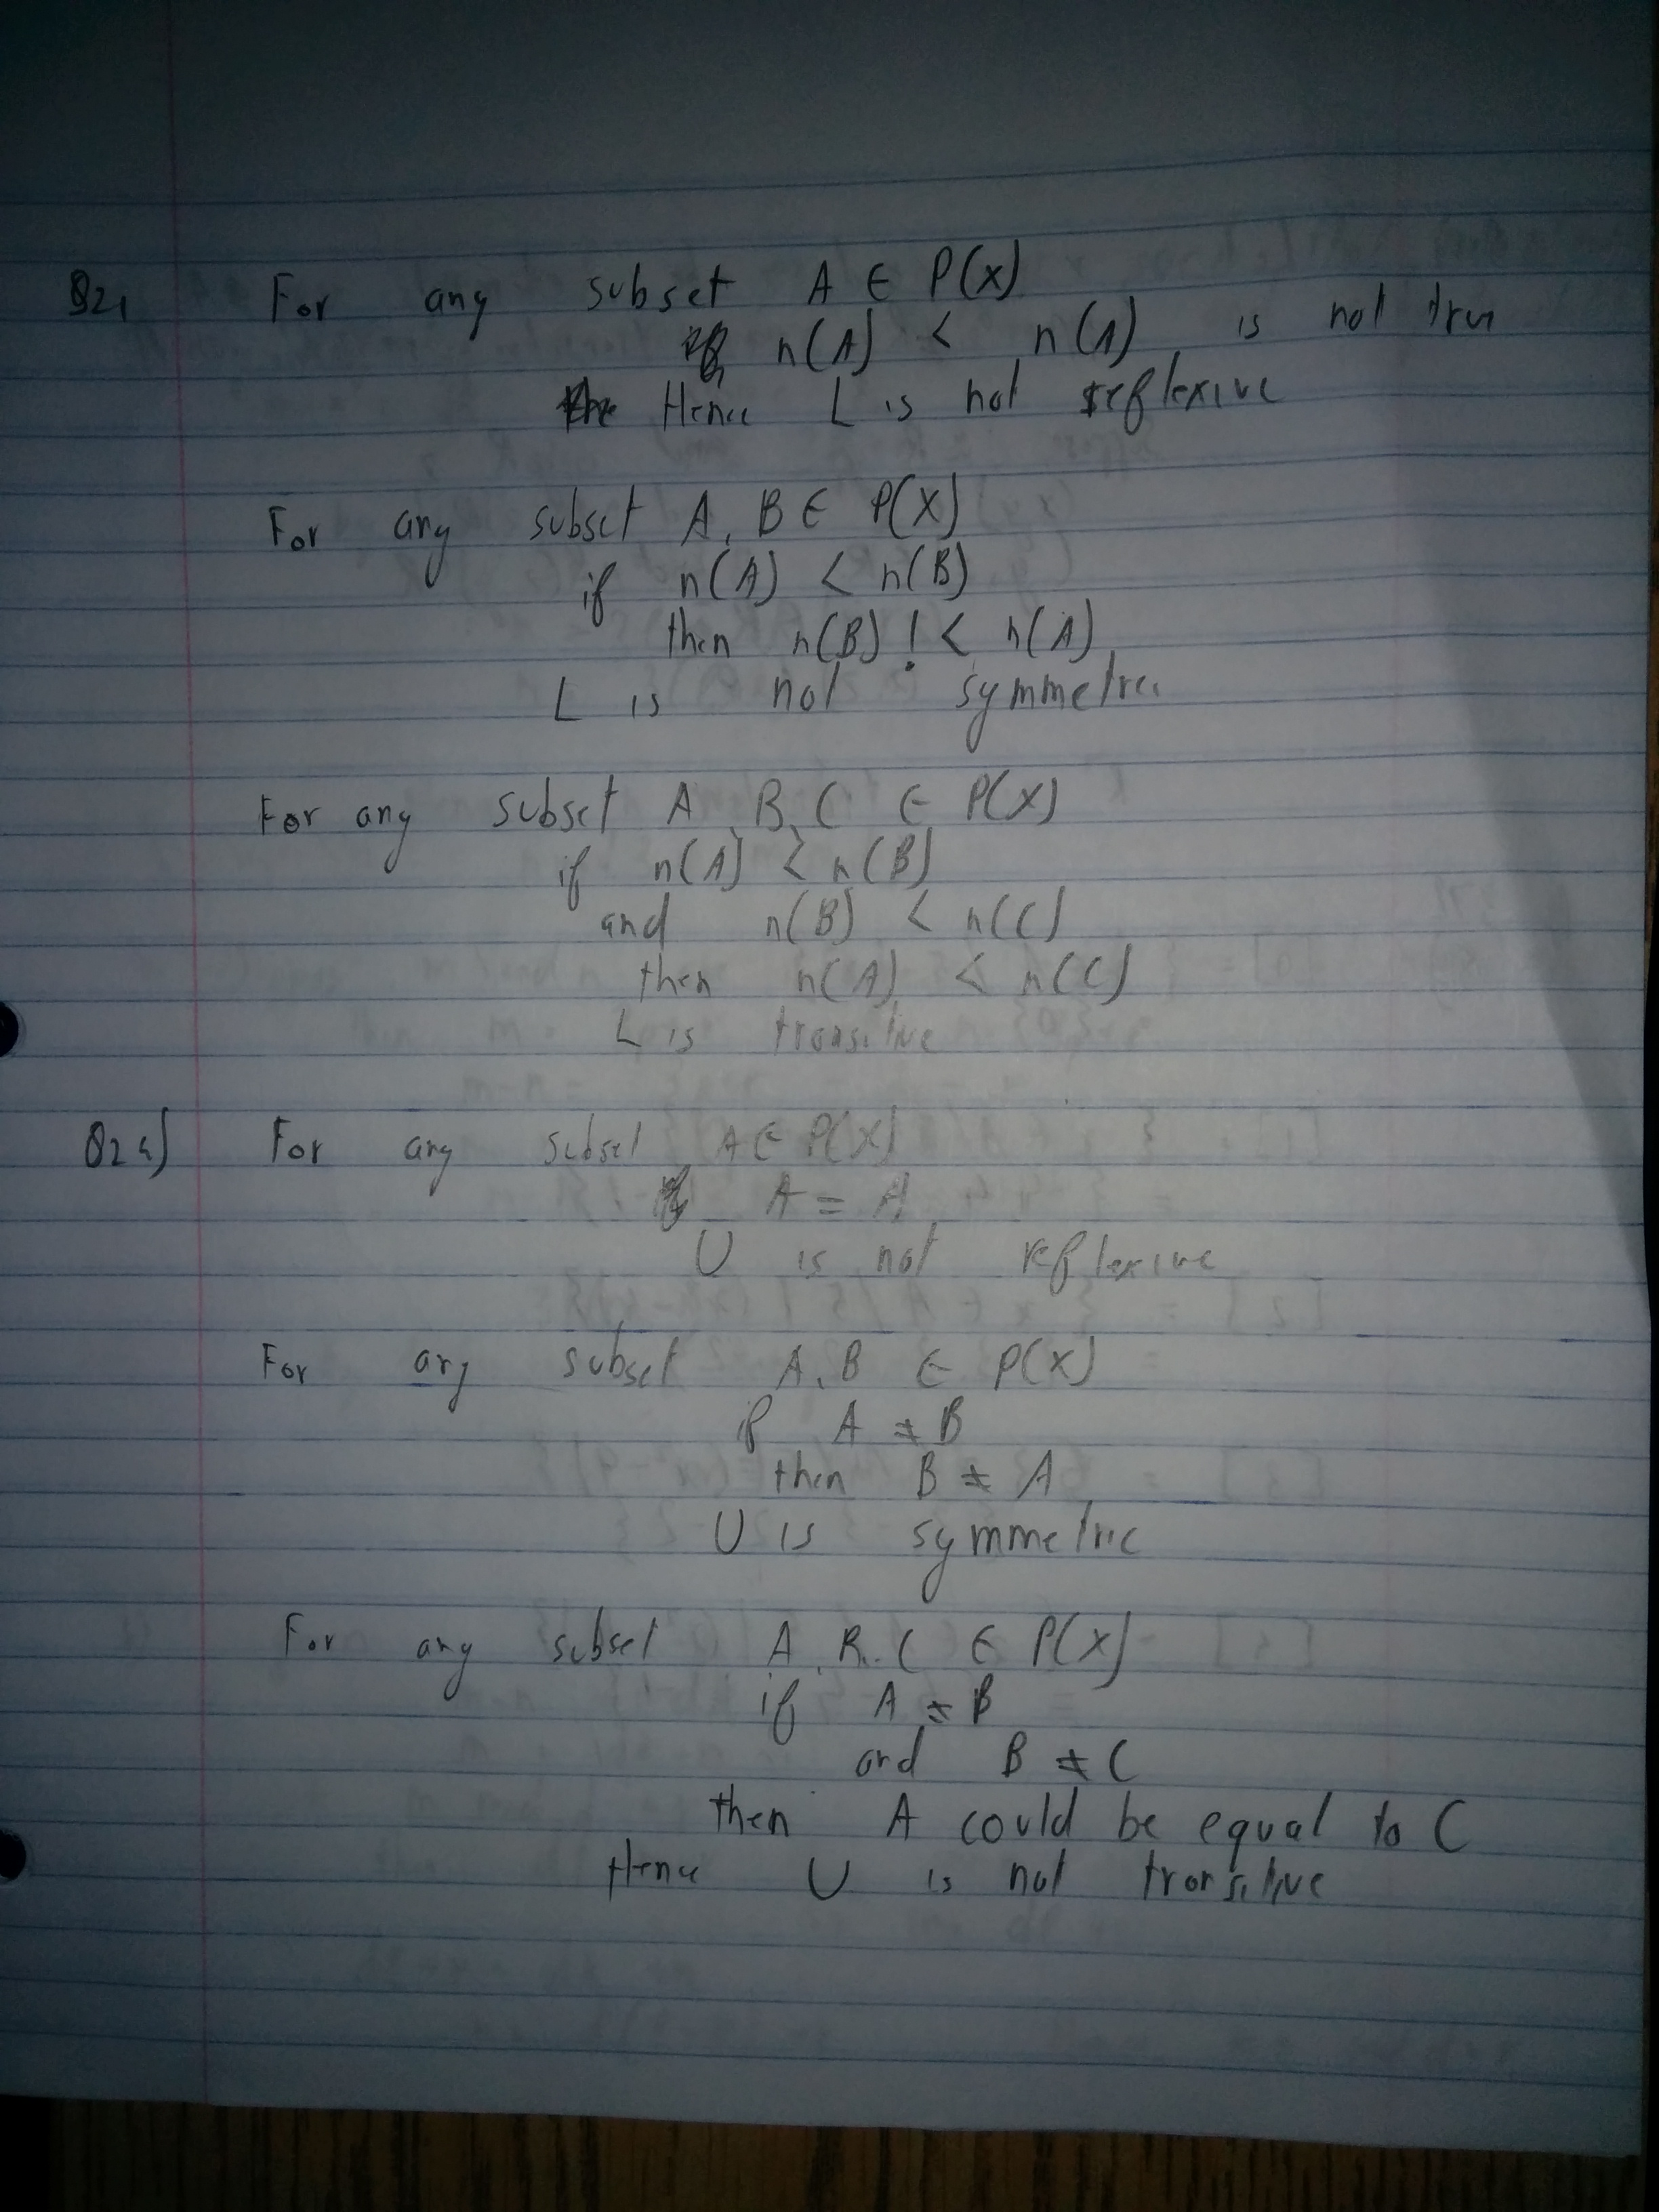 Q21 For any subset A ∈ P(X)
n(A) < n(A) is not tru
Hence L is not reflexive
For any subset A, B ∈ P(X)
if n(A) < n(B)
then n(B) !< n(A)
L is not symmetric
For any subset A, B, C ∈ P(X)
if n(A) < n(B)
and n(B) < n(C)
then n(A) < n(C)
L is transitive
Q24) For any subset A ∈ P(X)
A = A
U is not reflexive
For any subset A, B ∈ P(X)
if A ≠ B
then B ≠ A
U is symmetric
For any subset A, B, C ∈ P(X)
if A ≠ B
and B ≠ C
then A could be equal to C
Hence U is not transitive